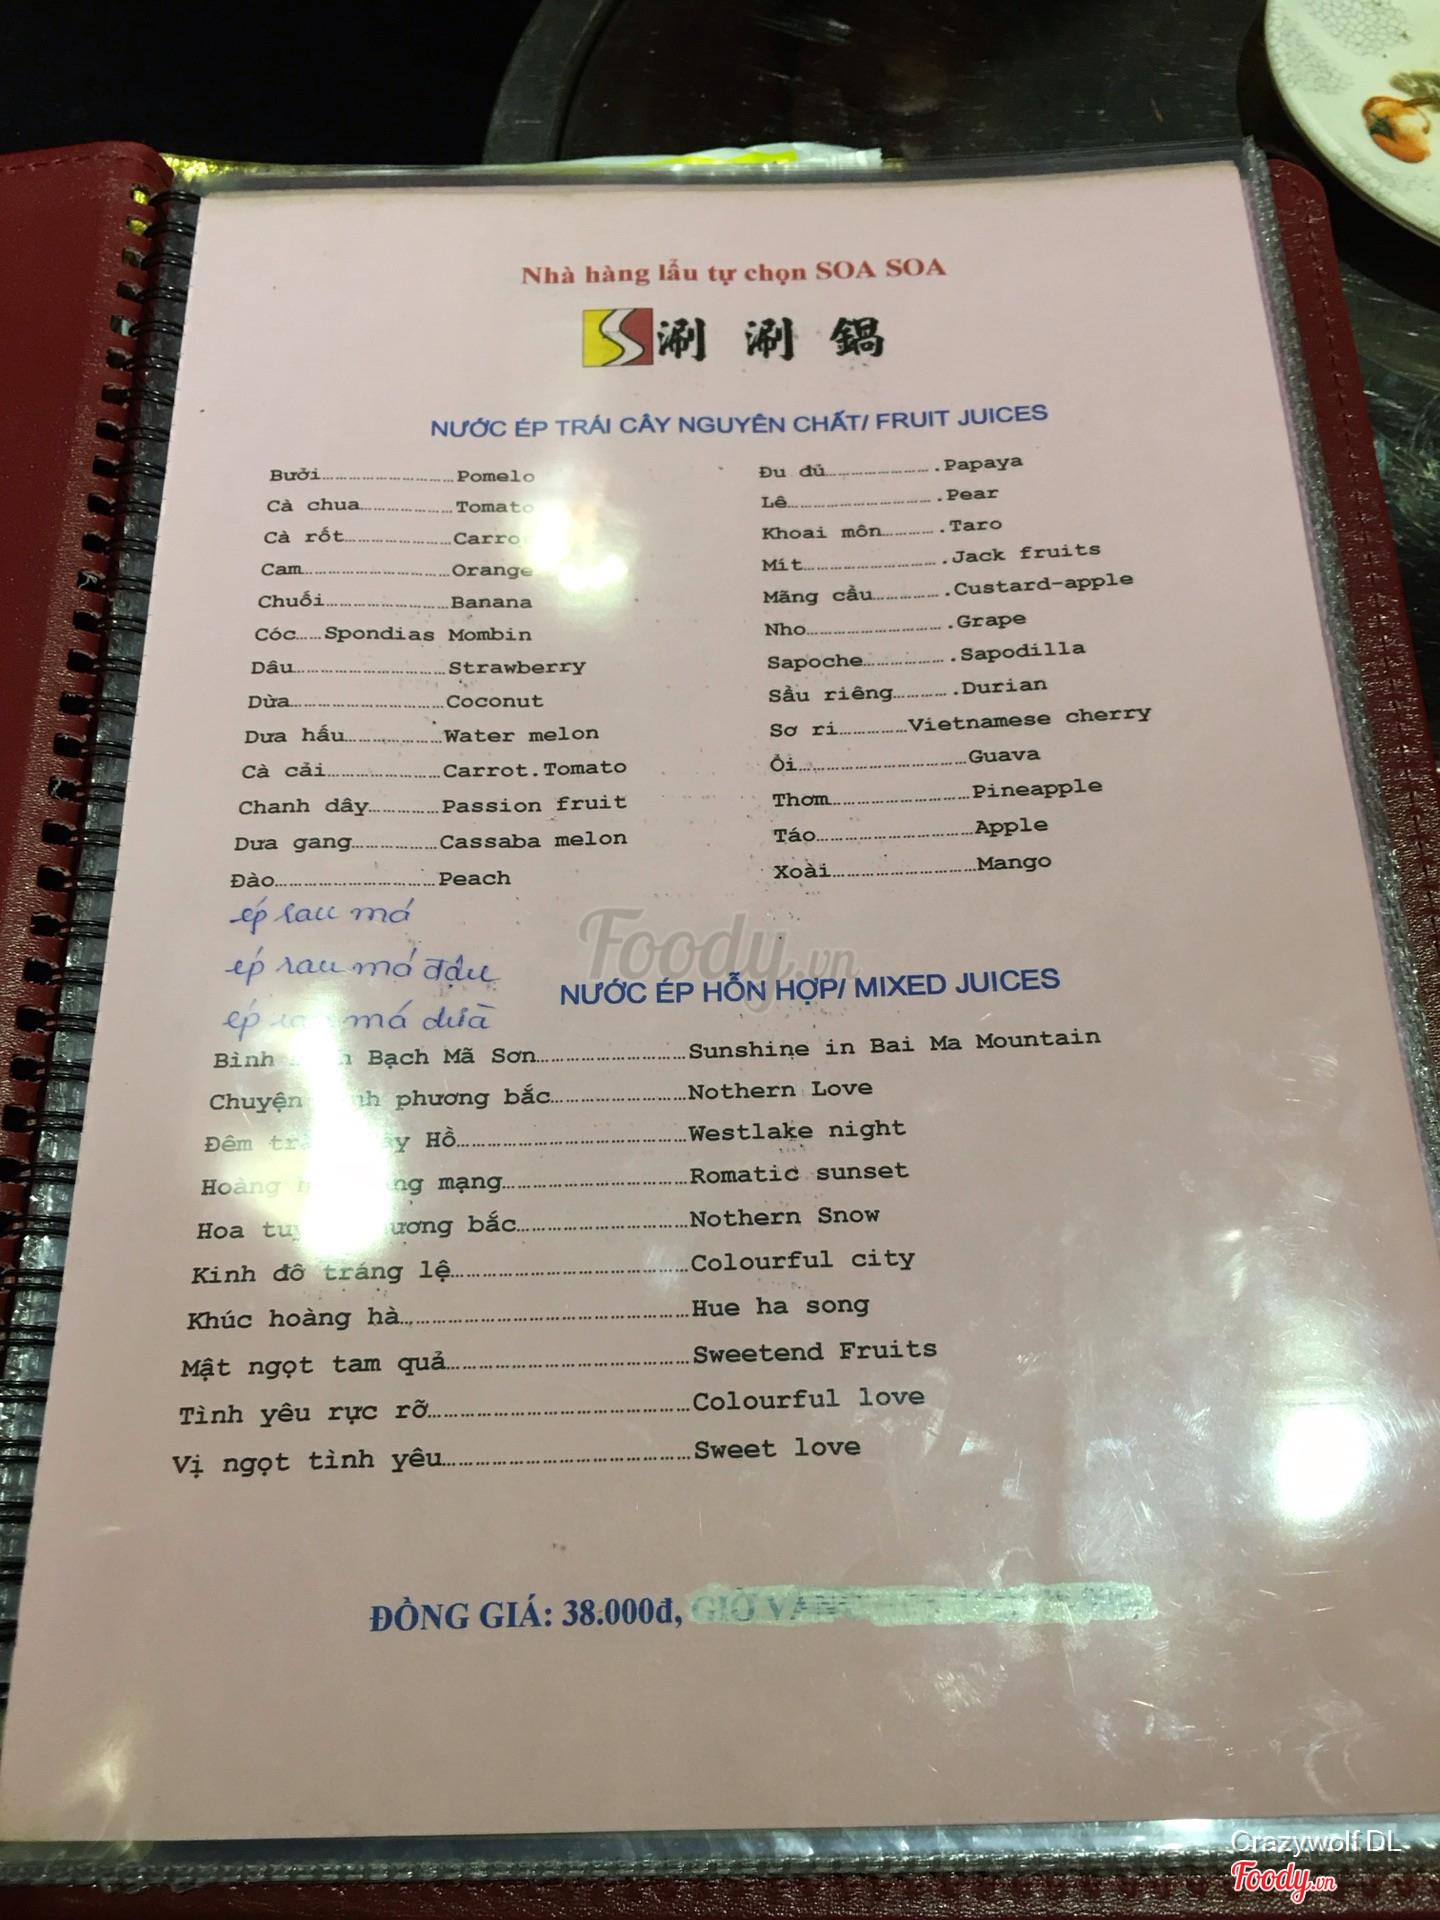 Nhà hàng lẩu tự chọn SOA SOA
S 涮 涮 鍋
NƯỚC ÉP TRÁI CÂY NGUYÊN CHẤT/ FRUIT JUICES
Bưởi..............................Pomelo
Cà chua.....................Tomato
Cà rốt........................Carro
Cam.................................Orange
Chuối...........................Banana
Cóc......Spondias Mombin
Dâu..................................Strawberry
Dừa..................................Coconut
Dưa hấu......................Water melon
Cà cải.........................Carrot.Tomato
Chanh dây................Passion fruit
Dưa gang...................Cassaba melon
Đào...................................Peach
ép rau má
ép rau má đậu
ép má dừa
Đu đủ........................Papaya
Lê................................Pear
Khoai môn............Taro
Mít..............................Jack fruits
Mãng cầu................Custard-apple
Nho..............................Grape
Sapoche.....................Sapodilla
Sầu riêng.............Durian
Sơ ri...............Vietnamese cherry
Ổi.....................................Guava
Thơm..............................Pineapple
Táo..................................Apple
Xoài...............................Mango
NƯỚC ÉP HỖN HỢP/ MIXED JUICES
Bình Bạch Mã Sơn..............................Sunshine in Bai Ma Mountain
Chuyện phương bắc...........................Nothern Love
Đêm Hồ..............................................Westlake night
Hoàng mạng.....................................Romatic sunset
Hoa bắc..................................Nothern Snow
Kinh đô tráng lệ...............................................Colourful city
Khúc hoàng hà.........................................................Hue ha song
Mật ngọt tam quả...............................................Sweetend Fruits
Tình yêu rực rỡ...................................................Colourful love
Vị ngọt tình yêu...............................................Sweet love
ĐỒNG GIÁ: 38.000đ, GIỜ
Foody.vn
Crazywolf DL
Foody.vn